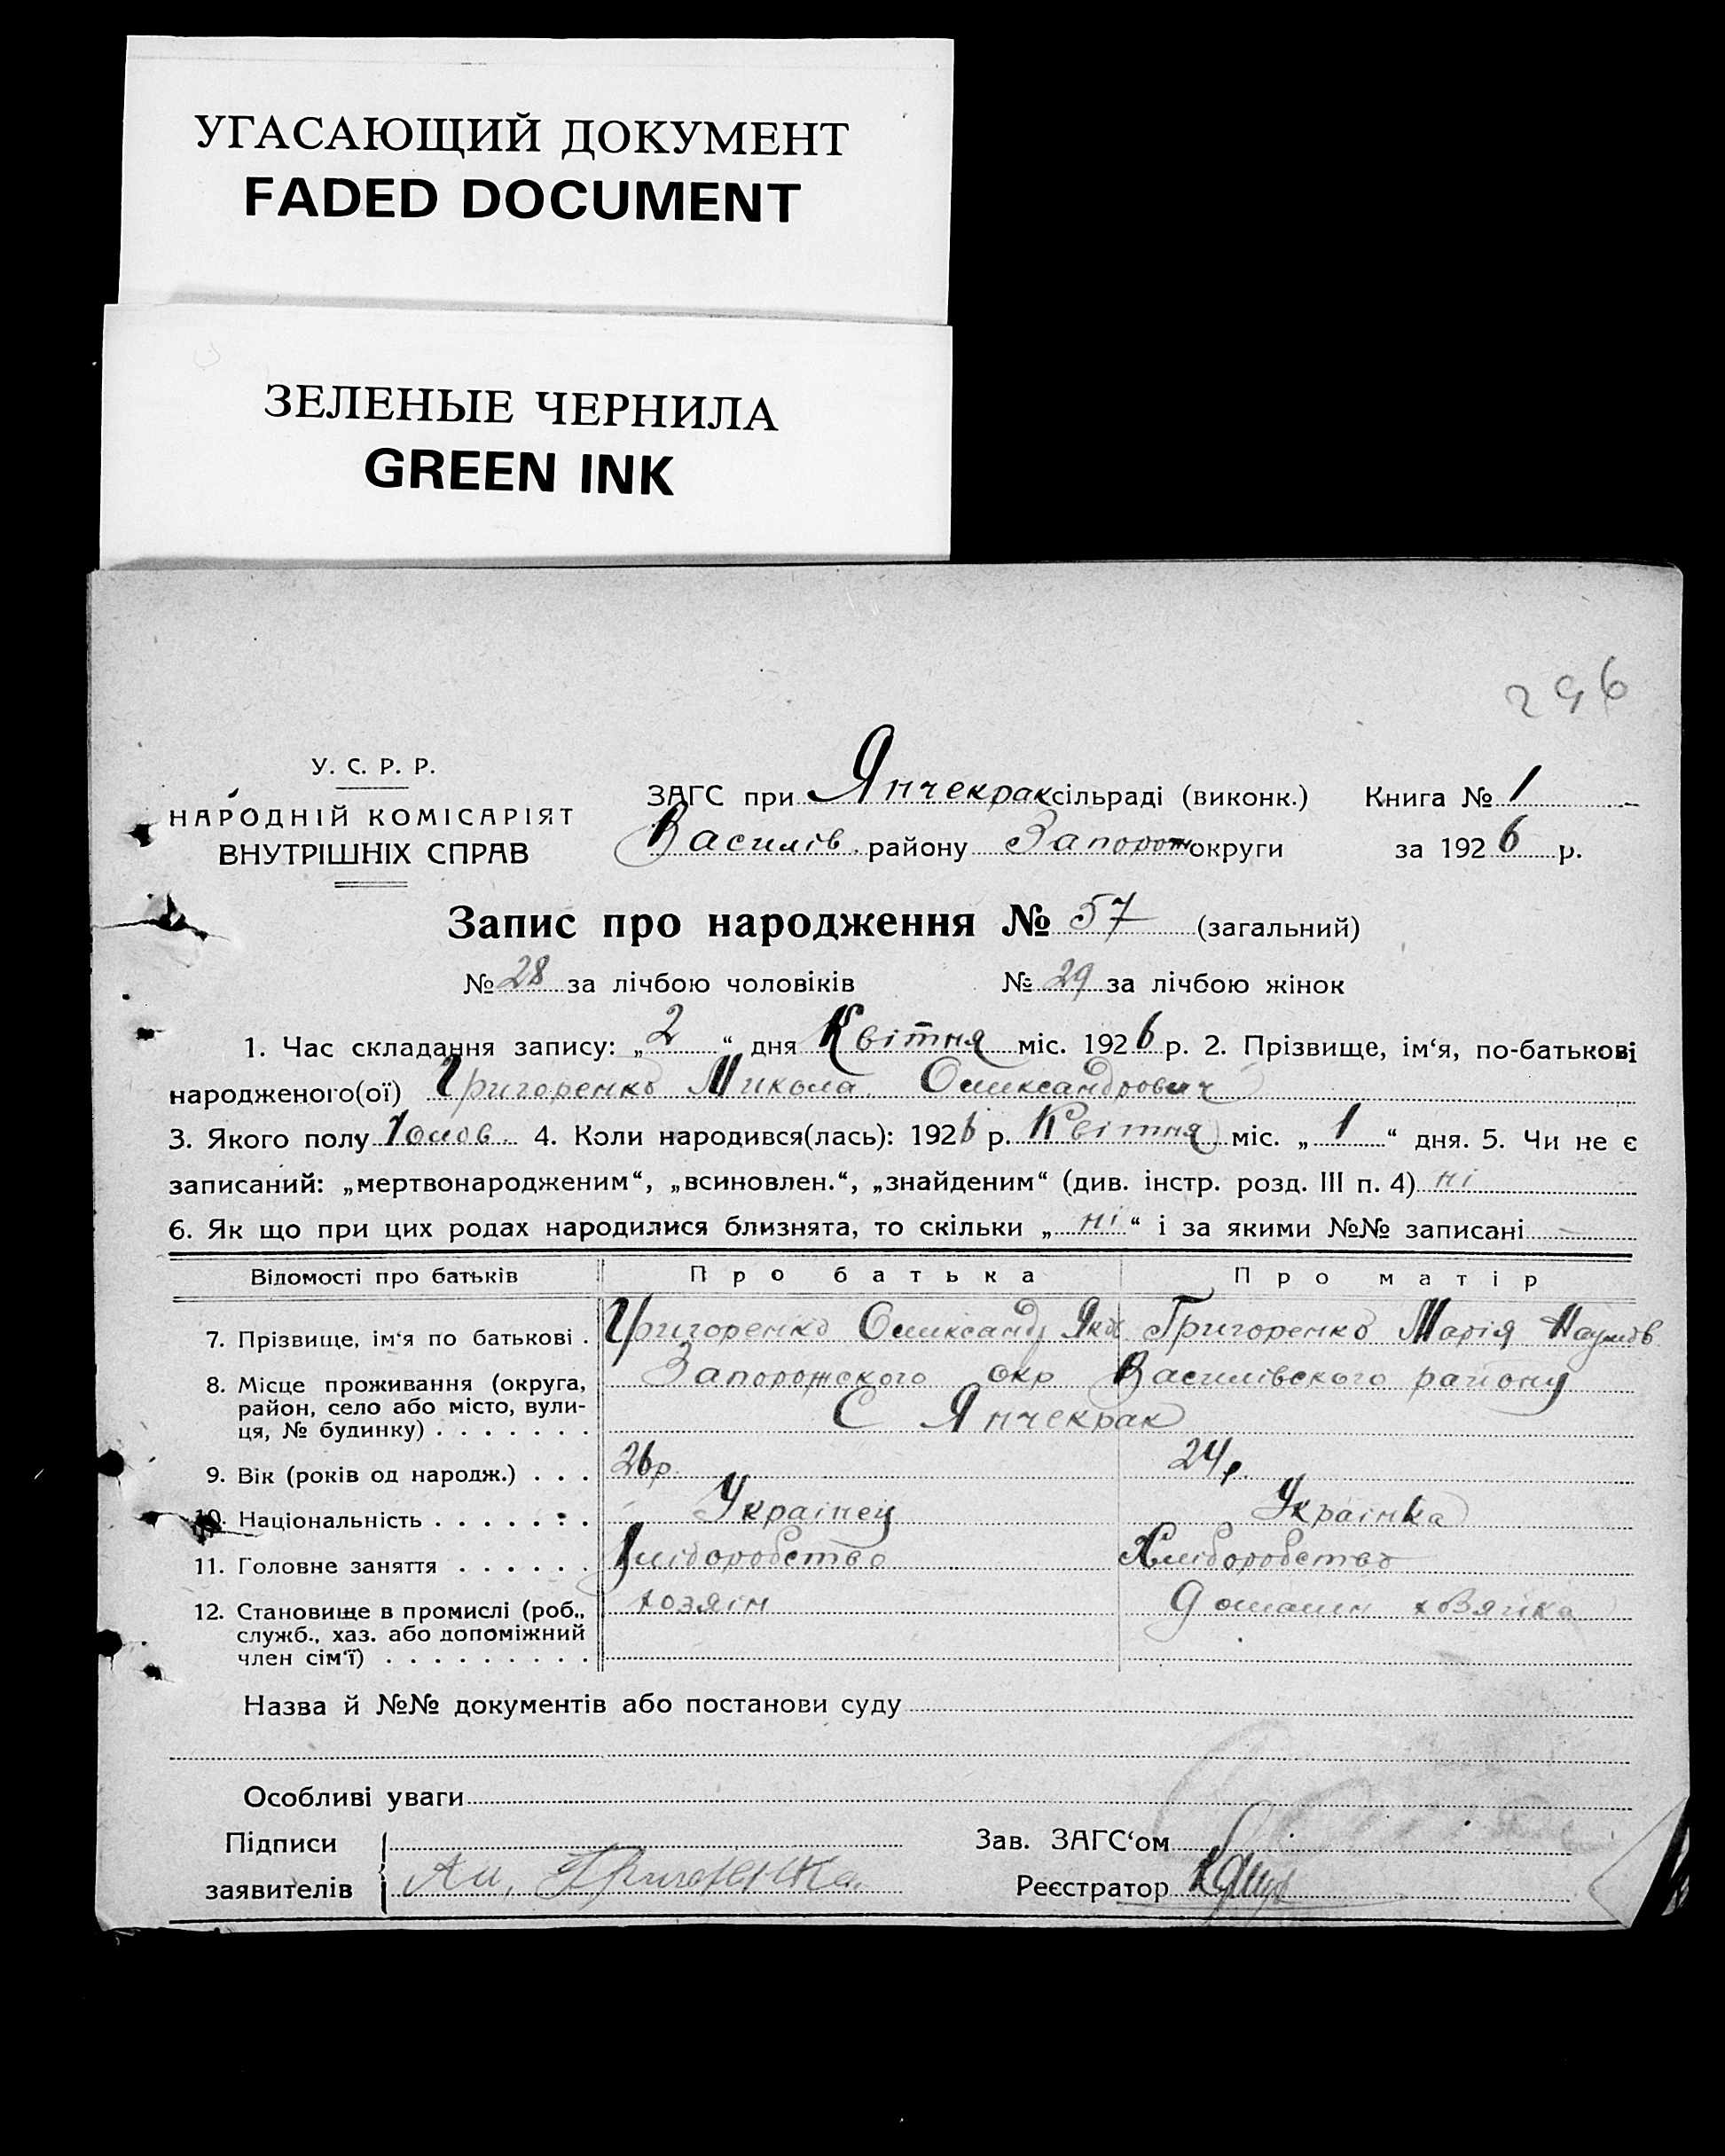 УГАСАЮЩИЙ ДОКУМЕНТ
FADED DOCUMENT
ЗЕЛЕНЫЕ ЧЕРНИЛА
GREEN INK
296
У. С. Р. Р.
НАРОДНІЙ КОМІСАРІЯТ
ВНУТРІШНІХ СПРАВ
ЗАГС при Янчекрак сільраді (виконк.) Книга № 1
Василів. району Запорож округи за 1926 р.
Запис про народження № 57 (загальний)
№ 28 за лічбою чоловіків № 29 за лічбою жінок
1. Час складання запису: „2“ дня Квітня міс. 1926 р. 2. Прізвище, ім‘я, по-батькові
народженого(ої) Григоренко Микола Олександрович
3. Якого полу 4. Коли народився(лась): 1926 р. Квітня міс. „1“ дня. 5. Чи не є
записаний: „мертвонародженим“, „всиновлен.“, „знайденим“ (див. інстр. розд. III п. 4) ні
6. Як що при цих родах народилися близнята, то скільки „ні“ і за якими №№ записані —
Відомості про батьків Про батька Про матір
7. Прізвище, ім‘я по батькові . Григоренко Олександ Як Григоренко Марія Наумов
8. Місце проживання (округа, Запорожского окр Василівского району
район, село або місто, вули- С Янчекрак
ця, № будинку) . . . . . . .
9. Вік (років од народж.) . . . 26р. 24р
10. Національність . . . . . . . Украінец Украінка
11. Головне заняття . . . . . . Хліборобство Хліборобство
12. Становище в промислі (роб., хозяін домашн хозяйка
служб., хаз. або допоміжний
член сім‘ї) . . . . . . . . .
Назва й №№ документів або постанови суду
Особливі уваги
Підписи Зав. ЗАГС‘ом
заявителів Ал, Григоренко Реєстратор